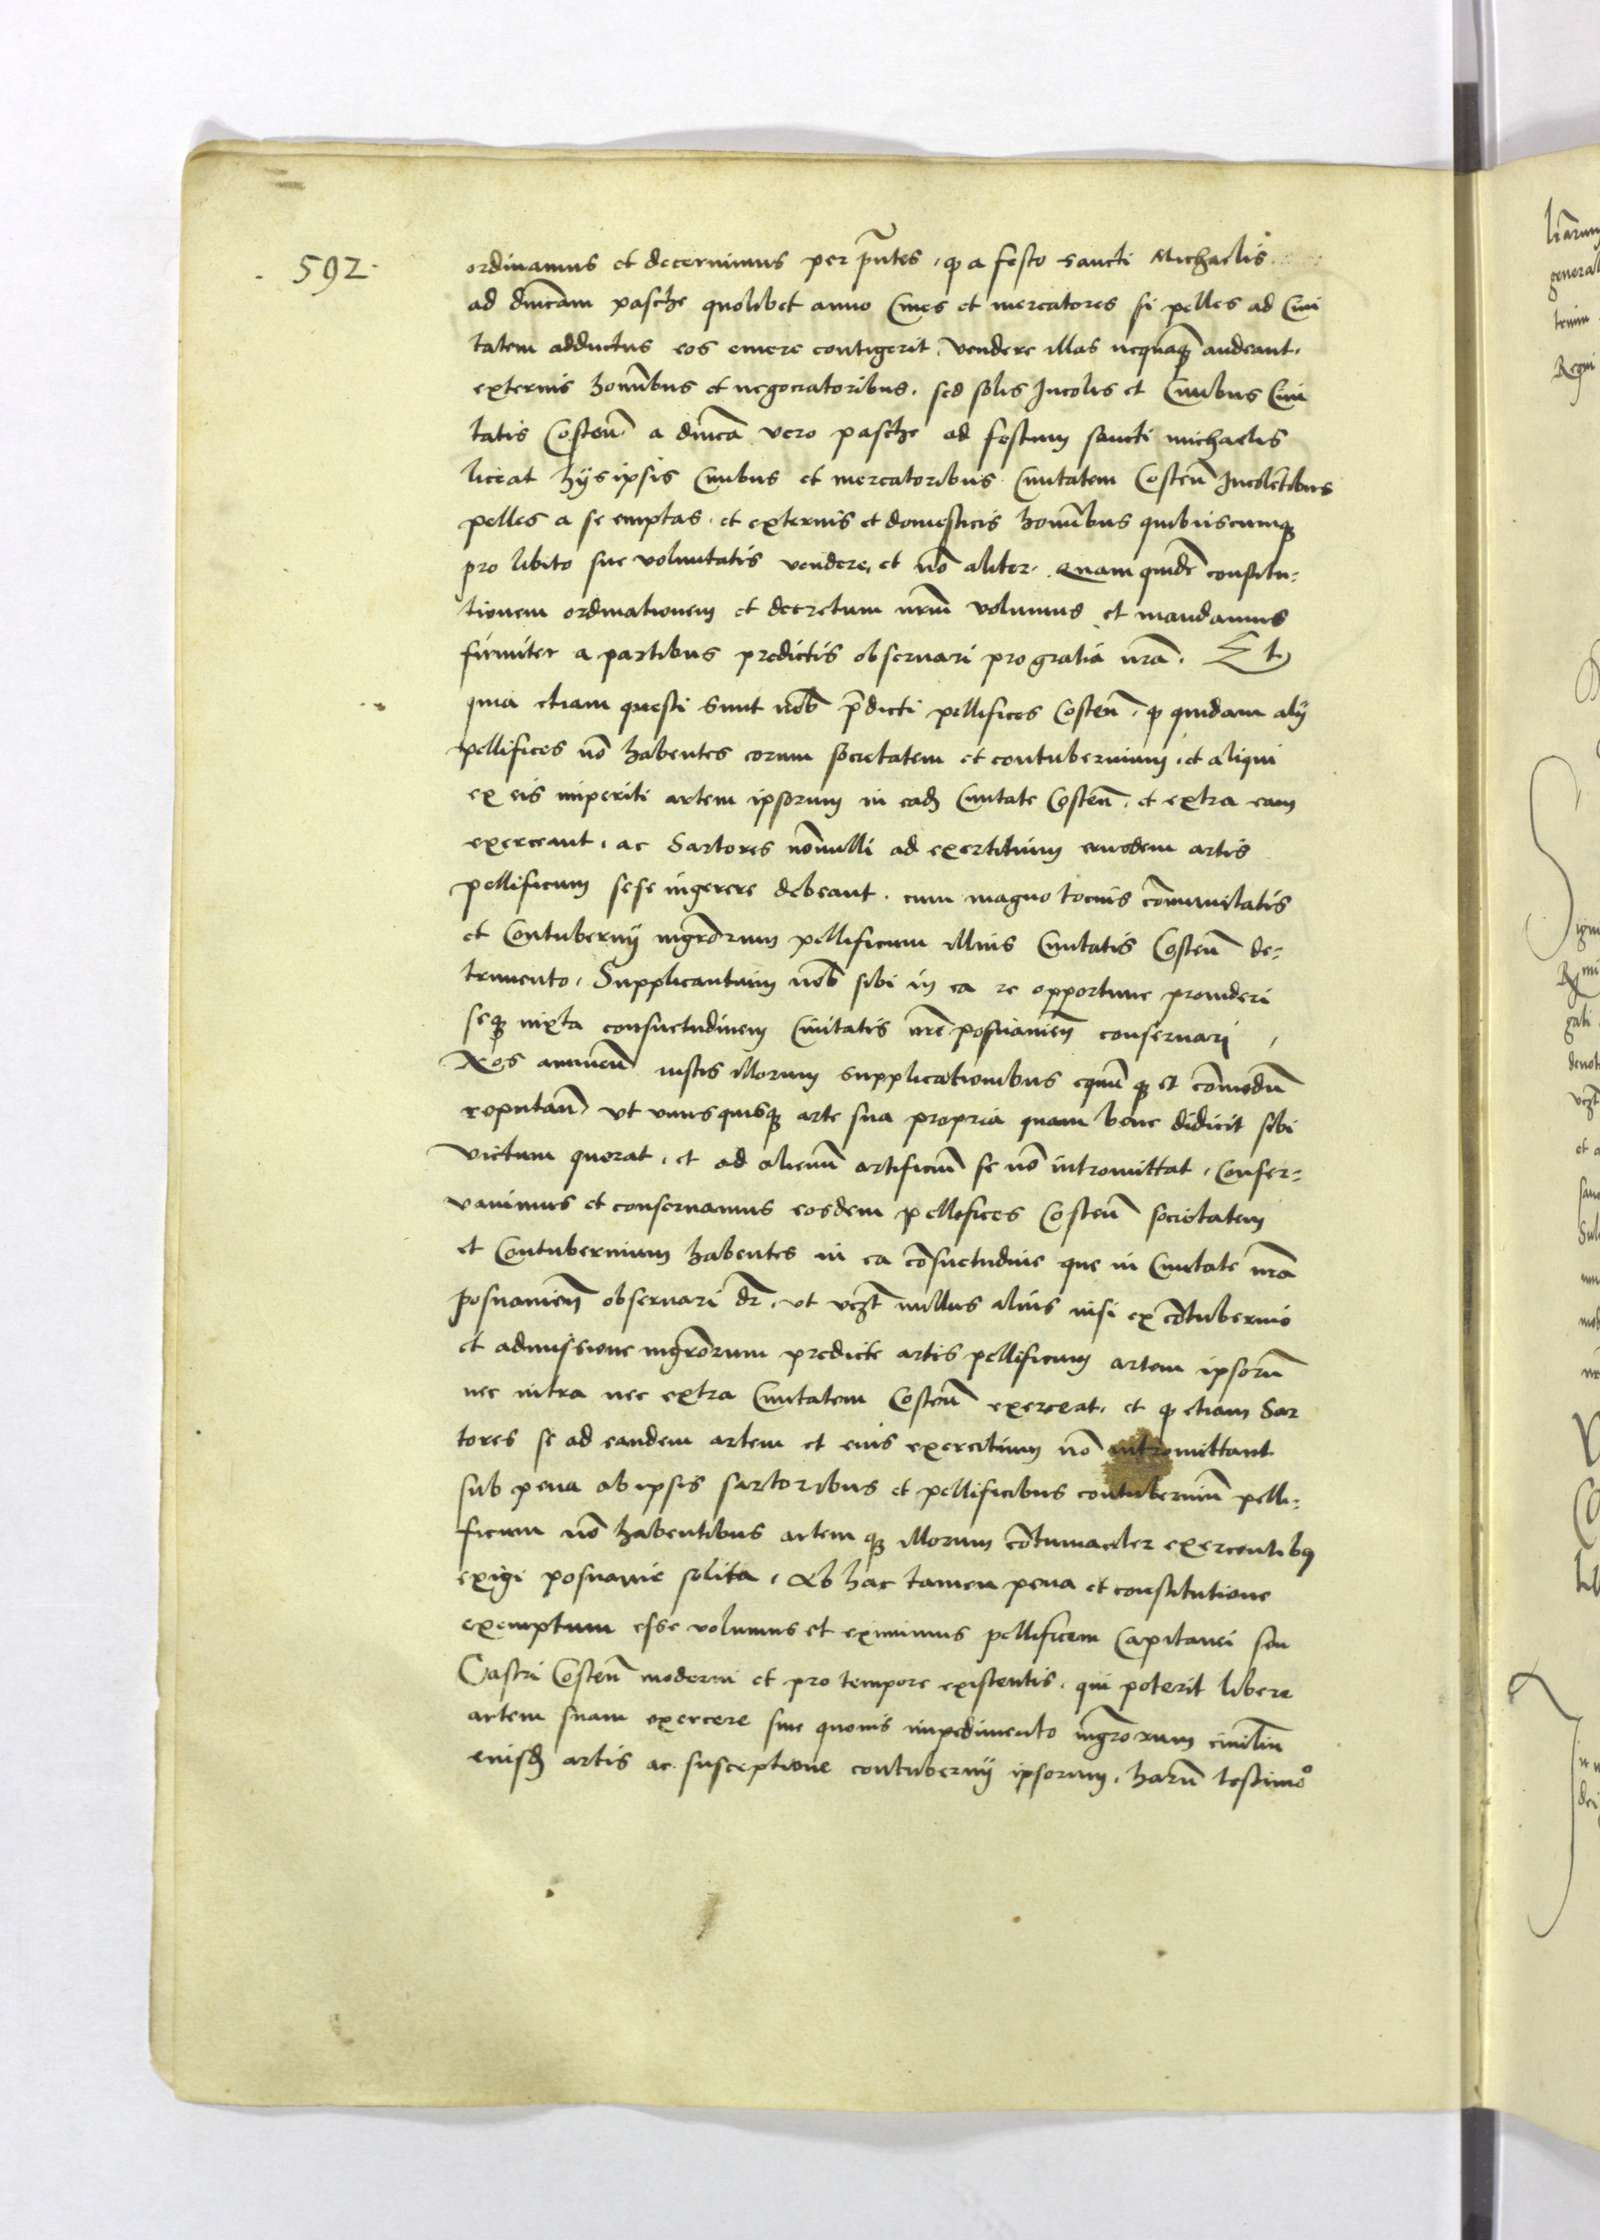 592
ordinamus et decernimus per pñtes, ꝙ a festo sancti Michaelis
ad dñicam pasche quolibet anno Ciues et mercatores si pelles ad Ciui
tatem adductus eos emere contigerit, vendere illas nequaꝗ audeant,
externis hom̃ibus et negociatoribus, sed solis Incolis et Ciuibus Ciui
tatis Costeñ, a dñica vero pasche ad festum sancti michaelis
liceat hijs ipsis Ciuibus et mercatoribus Ciuitatem Costeñ Incolẽtibus
pelles a se emptas, et externis et domesticis hom̃ibus quibuscumqꝫ
pro libito sue voluntatis vendere, et nõ aliter. Quam quidẽ constitu=
tionem ordinationem et decretum nr̃m volumus et mandamus
firmiter a partibus predictis obseruari pro gratia nr̃a. Et
quia etiam questi sunt nob̃ p̃dicti pellifices Costeñ, ꝙ quidam alij
pellifices nõ habentes eorum societatem et contubernium, et aliqui
ex eis imperiti artem ipsorum in eadꝫ Ciuitate Costeñ, et extra eam
exerceant, ac Sartores nõnulli ad exertitium eiusdem artis
pellificum sese ingerere debeant, cum magno tocius cõmunitatis
et Contubernij mgr̃orum pellificum illius Ciuitatis Costeñ de=
trimento, Supplicantium nob̃ sibi in ea re opportune prouideri
seqꝫ iuxta consuetudinem Ciuitatis nr̃e posnanieñ conseruari,
Nos annueñ iustis illorum supplicationibus equũ qꝫ et cõmodũ
reputañ, vt vnusquisqꝫ arte sua propria quam bene didicit sibi
victum querat, et ad alienũ artificiũ se nõ intromittat, Conser=
vauimus et conseruamus eosdem pellifices Costeñ societatem
et Contubernium habentes in ea cõsuetudine que in Ciuitate nr̃a
posnanieñ obseruari dr̃, vt vꝫt nullus alius nisi ex cõtubernio
et admissione mgr̃orum predicte artis pellificum artem ipsorũ
nec intra nec extra Ciuitatem Costeñ exerceat, et ꝙ etiam Sar
tores se ad eandem artem et eius exercitium nõ intromittant
sub pena ab ipsis sartoribus et pellificibus contuberniũ pelli=
ficum nõ habentibus artem qꝫ illorum cõtumaciter exercentibꝰ
exigi posnanie solita, Ab hac tamen pena et constitutione
exemptum esse volumus et eximimus pellificem Capitanei seu
Castri Costeñ moderni et pro tempore existentis, qui poterit libere
artem suam exercere sine quouis impedimento mgr̃orum ciuiliũ
eiusdꝫ artis ac susceptione contubernij ipsorum, harũ testimoº